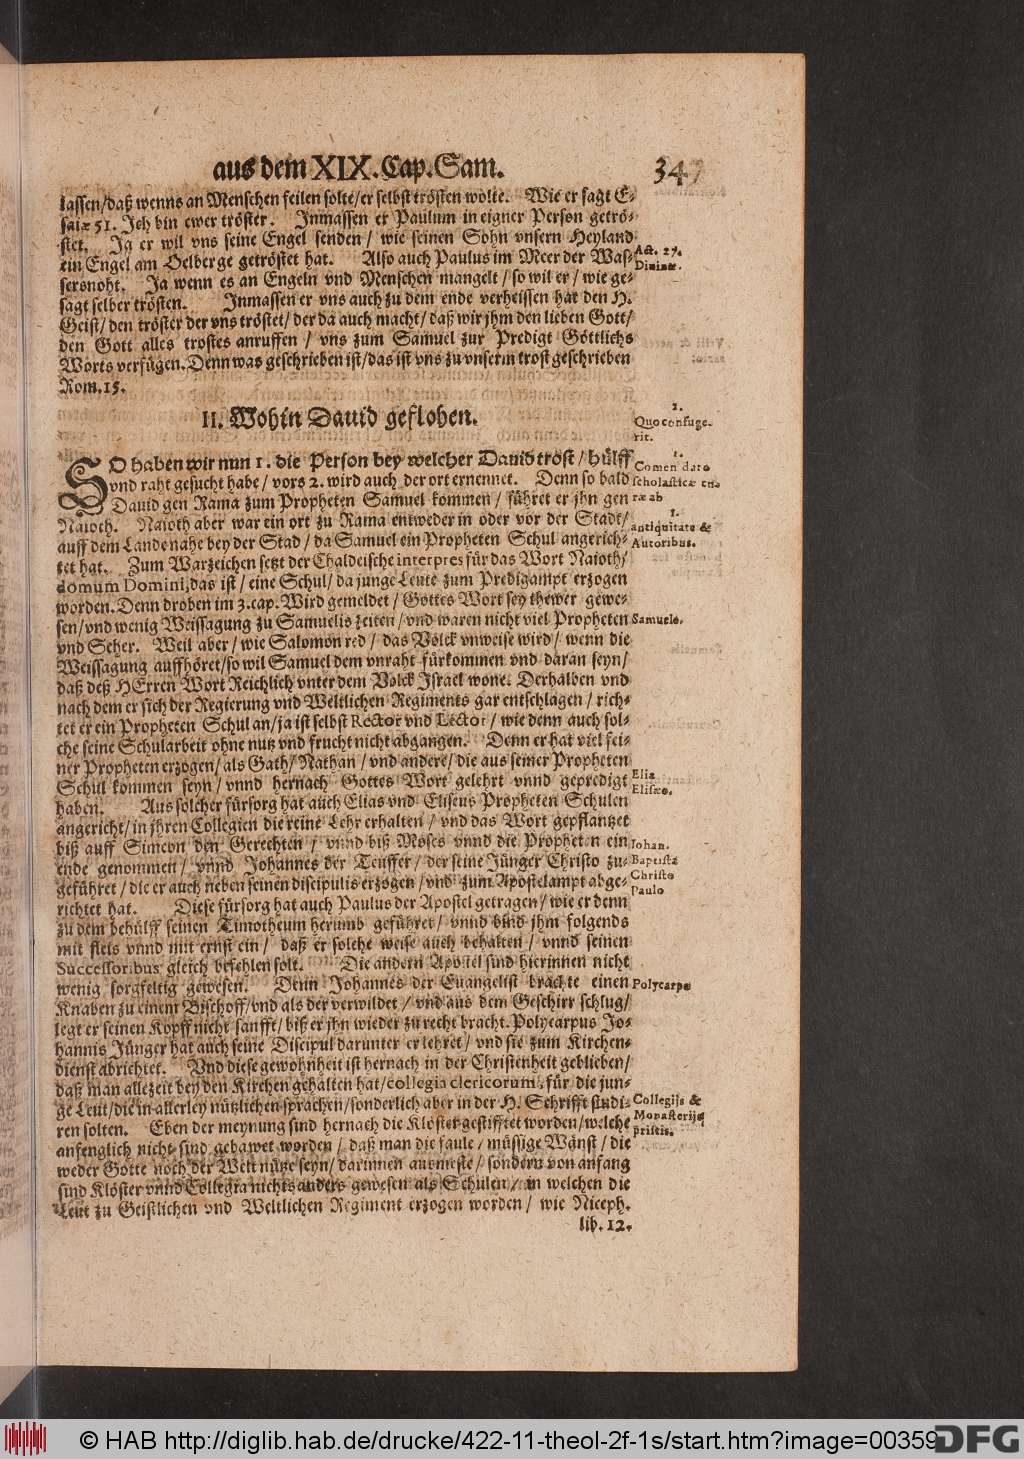 aus dem XIX. Cap. Sam. 347
lassen/daß wenns an Menschen feilen solte/er selbst trösten wolte. Wie er sagt E-
saiæ 51. Jch bin ewer tröster. Jnmassen er Paulum in eigner Person getrö-
stet. Ja er wil vns seine Engel senden/ wie seinen Sohn vnsern Heyland
ein Engel am Oelberge getröstet hat. Also auch Paulus im Meer der Was-
Act. 27.
Divinæ.
sersnoht. Ja wenn es an Engeln vnd Menschen mangelt/ so wil er/ wie ge-
sagt selber trösten. Jnmassen er vns auch zu dem ende verheissen hat den H.
Geist/ den tröster der vns tröstet/ der da auch macht/ daß wir jhm den lieben Gott/
den Gott alles trostes anruffen/ vns zum Samuel zur Predigt Göttlichs
Worts verfügen. Denn was geschrieben ist/das ist vns zu vnserm trost geschrieben
Rom. 15.
II. Wohin Dauid geflohen.
2.
Quo confuge-
rit.
SO haben wir nun 1. die Person bey welcher Dauid tröst/ hülff
vnd raht gesucht habe/ vors 2. wird auch der ort ernennet. Denn so bald
Dauid gen Rama zum Propheten Samuel kommen/ führet er jhn gen
1.
Comendatæ
scholasticæ cu-
ræ ab
Naioth. Naioth aber war ein ort zu Rama entweder in oder vor der Stadt/
auff dem Lande nahe bey der Stad/ da Samuel ein Propheten Schul angerich-
1.
antiquitate &
Autoribus.
tet hat. Zum Warzeichen setzt der Chaldeische interpres für das Wort Naioth/
domum Domini, das ist/ eine Schul/ da junge Leute zum Predigampt erzogen
worden. Denn droben im 3. cap. Wird gemeldet/ Gottes Wort sey thewer gewe-
sen/vnd wenig Weissagung zu Samuelis zeiten/ vnd waren nicht viel Propheten
Samuele.
vnd Seher. Weil aber/ wie Salomon red/ das Volck vnweise wird/ wenn die
Weissagung auffhöret/so wil Samuel dem vnraht fürkommen vnd daran seyn/
daß deß HErren Wort Reichlich vnter dem Volck Jsrael wone. Derhalben vnd
nach dem er sich der Regierung vnd Weltlichen Regiments gar entschlagen/ rich-
tet er ein Propheten Schul an/ ja ist selbst Rector vnd Lector/ wie denn auch sol-
che seine Schularbeit ohne nutz vnd frucht nicht abgangen. Denn er hat viel fei-
ner Propheten erzogen/ als Gath/ Nathan/ vnd andere/ die aus seiner Propheten
Schul kommen seyn/ vnnd hernach Gottes Wort gelehrt vnnd gepredigt
Elia
Elisæo.
haben. Aus solcher fürsorg hat auch Elias vnd Eliseus Propheten Schulen
angericht/ in jhren Collegien die reine Lehr erhalten/ vnd das Wort gepflantzet
biß auff Simeon den Gerechten/ vnnd biß Moses vnnd die Propheten ein
ende genommen/ vnnd Johannes der Teuffer/ der seine Jünger Christo zu-
geführet/ die er auch neben seinen discipulis erzogen/ vnd zum Apostelampt abge-
Iohan.
Baptista
Christo
Paulo
richtet hat. Diese fürsorg hat auch Paulus der Apostel getragen/ wie er denn
zu dem behülff seinen Timotheum herumb geführet/ vnnd bind jhm folgends
mit fleis vnnd mit ernst ein/ daß er solche weise auch behalten/ vnnd seinen
Successoribus gleich befehlen solt. Die andern Apostel sind hierinnen nicht
wenig sorgfeltig gewesen. Denn Johannes der Euangelist brachte einen
Polycarpo
Knaben zu einem Bischoff/vnd als der verwildet/ vnd aus dem Geschirr schlug/
legt er seinen Kopff nicht sanfft/ biß er jhn wieder zu recht bracht. Polycarpus Jo-
hannis Jünger hat auch seine Discipul darunter er lehret/ vnd sie zum Kirchen-
dienst abrichtet. Vnd diese gewohnheit ist hernach in der Christenheit geblieben/
daß man allezeit bey den Kirchen gehalten hat/collegia clericorum, für die jun-
ge Leut/die in allerley nützlichen sprachen/sonderlich aber in der H. Schrifft studi-
ren solten. Eben der meynung sind hernach die Klöster gestifftet worden/welche
Collegijs &
Monasterijs
pristis.
anfenglich nicht sind gebawet worden/ daß man die faule/ müssige Wänst/ die
weder Gotte noch der Welt nütze seyn/ darinnen ausmeste/ sondern von anfang
sind Klöster vnnd Collegia nichts anders gewesen als Schulen/ in welchen die
Leut zu Geistlichen vnd Weltlichen Regiment erzogen worden/ wie Niceph.
lib. 12.
© HAB http://diglib.hab.de/drucke/422-11-theol-2f-1s/start.htm?image=00359
DFG